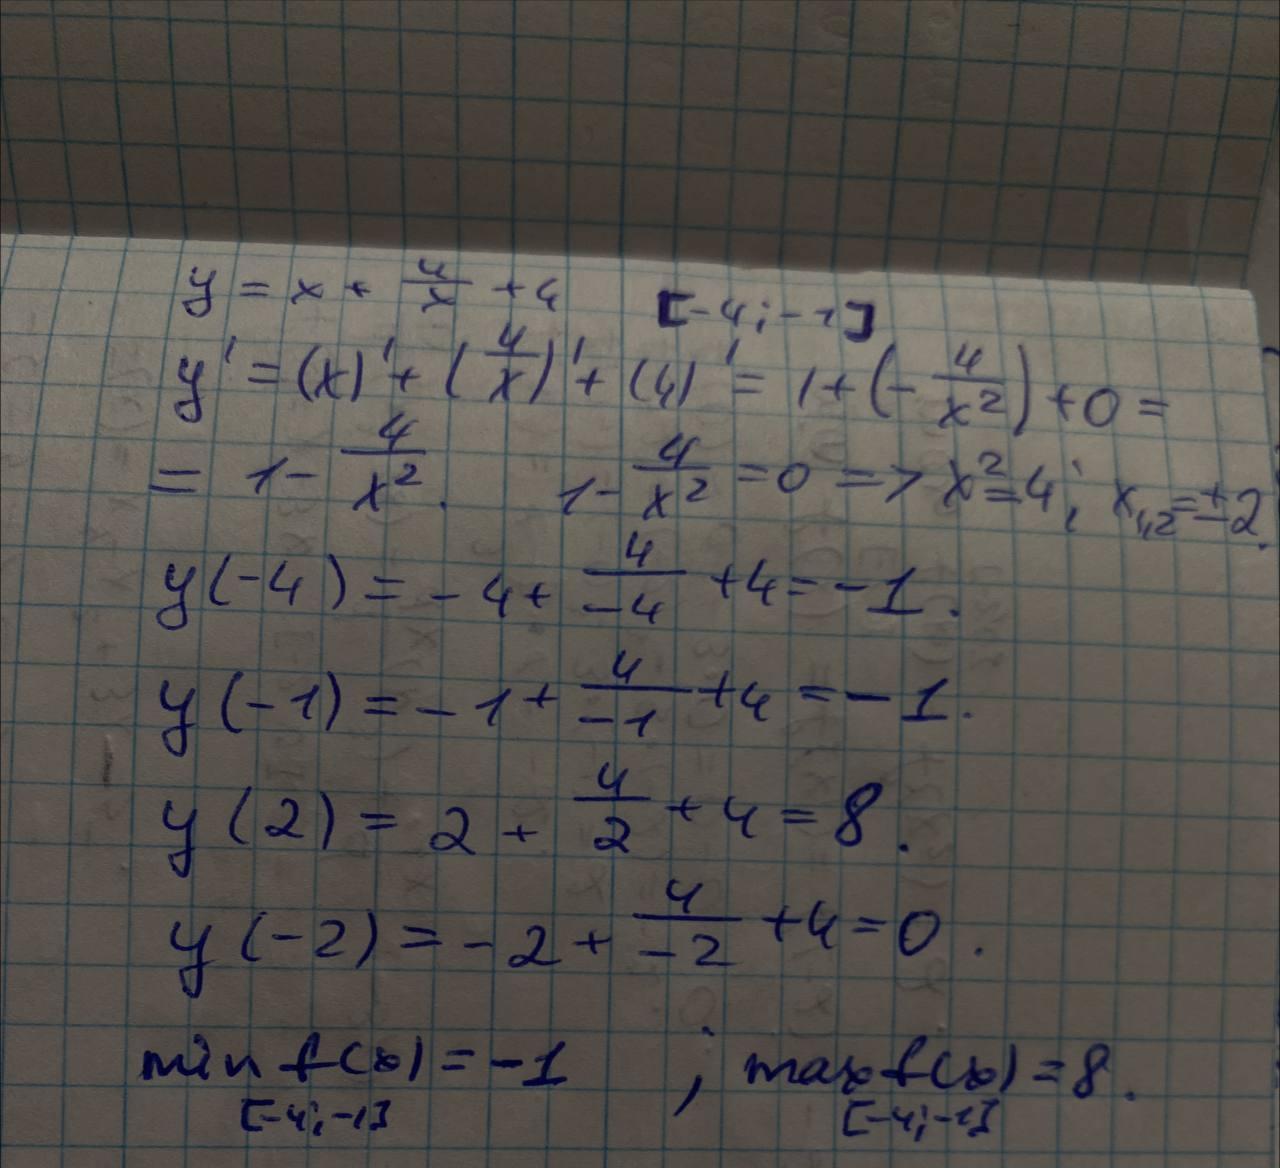 y = x + 4/x + 4 [-4; -1]
y' = (x)' + (4/x)' + (4)' = 1 + (- 4/x²) + 0 =
= 1 - 4/x². 1 - 4/x² = 0 => x² = 4; x₁,₂ = ±2.
y(-4) = -4 + 4/-4 + 4 = -1.
y(-1) = -1 + 4/-1 + 4 = -1.
y(2) = 2 + 4/2 + 4 = 8.
y(-2) = -2 + 4/-2 + 4 = 0.
min f(x) = -1 ; max f(x) = 8.
[-4; -1] [-4; -1]